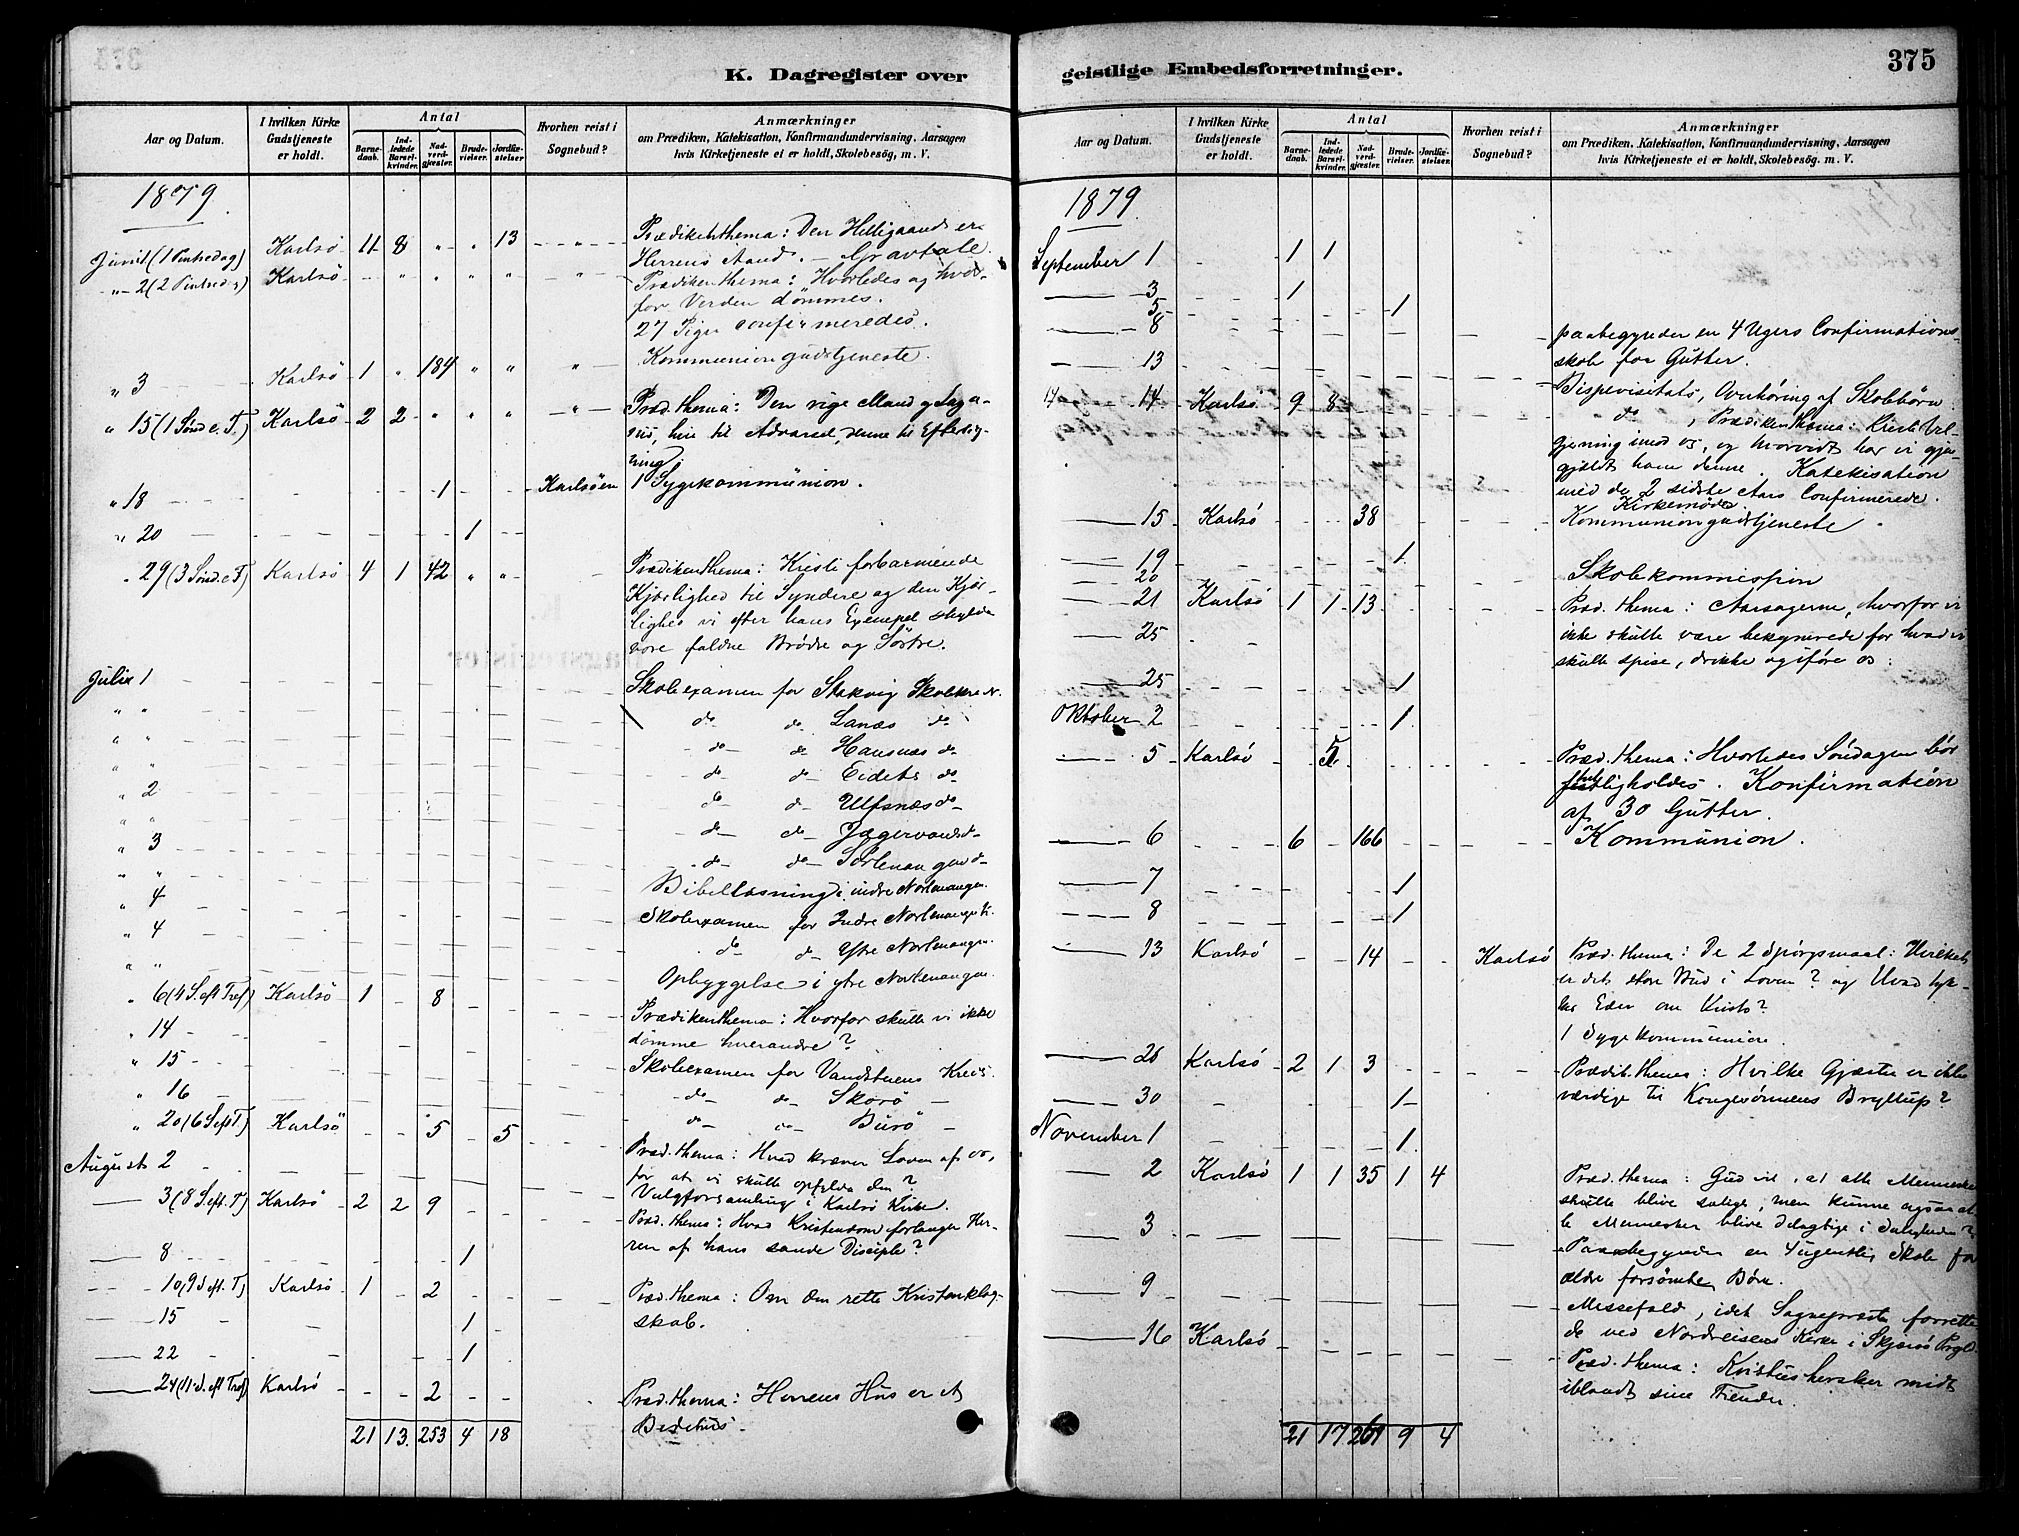 375
K. Dagregister over
geistlige Embedsforretninger.
Aar og Datum.
I hvilken Kirke Gudstjeneste er holdt.
Antal
Barnedaab.
Indledede Barselkvinder.
Nadverdgjæster.
Brudevielser.
Jordfæstelser
Hvorhen reist i Sognebud?
Anmærkninger
om Prædiken, Katekisation, Konfirmandundervisning, Aarsagen
hvis Kirketjeneste ei er holdt, Skolebesøg, m. V.
1879
(1 Pintsedag) Karlsö 11 8 " " 13 " Prædikenthema: Den Helligaand er
Herrens Aand. – Gravtale.
" 2 (2 Pintsedag) Karlsö " " " " " Prædikenthema: Hvorledes og hvor-
for Verden dømmes.
27 Piger confirmeredes.
" 3 Karlsö 1 " 184 " " " Kommuniongudstjeneste.
" 15 (1 Sønd. e. T.) Karlsö 2 2 " " " " Præd. thema: Den rige Mand og Laza-
rus, hin til Advarsel, denne til Efterlig-
ning.
" 18 1 Karlsöen 1 Sygekommunion.
" 20 1
" 29 (3 Sønd. e T) Karlsö 4 1 42 " " Prædikenthema: Kristi forbarmende
Kjærlighed til Syndere og den Kjær-
lighed vi efter hans Exempel skylde
vore faldne Brødre og Söstre.
Juli 1 Skoleexamen for Stakvig Skolekr.
" " do do Lanæs do
" " do do Hansnæs do
" " do do Eidets do
" 2 do do Ulfsnæs do
" " do do Jægervands do
" 3 do do Sörlenangen do
" " Bibellæsning i indre Norlenangen.
" 4 Skoleexamen for Indre Norlenangen K.
" 4 do do Ytre Norlenangen.
" " Opbyggelse i ytre Norlenangen.
" 6 (4 S. eft Tref) Karlsö 1 8 Prædikenthema: Hvorfor skulle vi ikke
dømme hverandre?
" 14 Skoleexamen for Vandstuens Kreds
" 15 do do Skorö
" 16 do do Burö
" 20 (6 S eft T.) Karlsö 5 5 Præd. thema: Hvad kræver Loven af os,
for at vi skulle opfylde den?
August 2 Valgforsamling i Karlsö Kirke.
3 (8 S. eft. T) Karlsö 2 2 9 Præd. thema: Hvad Kristendom forlanger Her-
ren af hans sande Disciple?
8 1
10 (9 S eft. T) Karlsö 1 2 Præd. thema: Om den rette Kristenklog-
skab.
15 1
22 1
24 (11 S. eft Tref) Karlsö 2 Præd. thema: Herrens Hus er et
Bedehus.
21 13 253 4 18
Aar og Datum.
I hvilken Kirke Gudstjeneste er holdt.
Antal
Barnedaab.
Indledede Barselkvinder.
Nadverdgjæster.
Brudevielser.
Jordfæstelser.
Hvorhen reist i Sognebud?
Anmærkninger
om Prædiken, Katekisation, Konfirmandundervisning, Aarsagen
hvis Kirketjeneste ei er holdt, Skolebesøg, m. V.
1879
September 1 1 1
3 1
5 1
8 paabegynder en 4 Ugers Confirmations-
skole for Gutter.
13 Bispevisitats, Overhøring af Skolebørn.
14 Karlsö 9 8 do, Prædikenthema: Kristi Vel-
gjerning imod os, og hvorvidt har vi gjen-
gjældt ham denne. Katekisation
med de 2 sidste Aars Confirmerede.
Kirkemøde.
15 Karlsö 38 Kommuniongudstjeneste.
19 1
20 Skolekommission
21 Karlsö 1 1 13 Præd. thema: Aarsagerne, hvorfor vi
ikke skulle være bekymrede for hvad vi
skulle spise, drikke og iføre os.
25
25 1
Oktober 2 1
5 Karlsö 5 Præd. thema: Hvorledes Söndagen bör
helligholdes. Konfirmation
af 30 Gutter.
6 6 166 Kommunion.
7 1
8 1
13 Karlsö 14 Karlsö Præd. thema: De 2 Spørgsmaal: Hvilket
er det store Bud i Loven? og Hvad tyk-
kes Eder om Kristo?
1 Sygekommunion.
26 Karlsö 2 1 3 Prædik. thema: Hvilke Gjæster er ikke
værdige til Kongesønnens Bryllup?
30 1
November 1 1
2 Karlsö 1 1 35 1 4 Præd. thema: Gud vil, at alle Mennesker
skulle blive salige, men kunne ogsaa al-
le Mennesker blive delagtige i Saligheden?
3 Paabegynder en 4 ugentlig Skole for
ældre forsömte Børn.
9 Messefald, idet Sognepræsten forrette-
de ved Nordreisens Kirke i Skjervö Prgld.
16 Karlsö Præd. thema: Kristus hersker midt
iblandt sine Fiender.
21 17 269 9 4